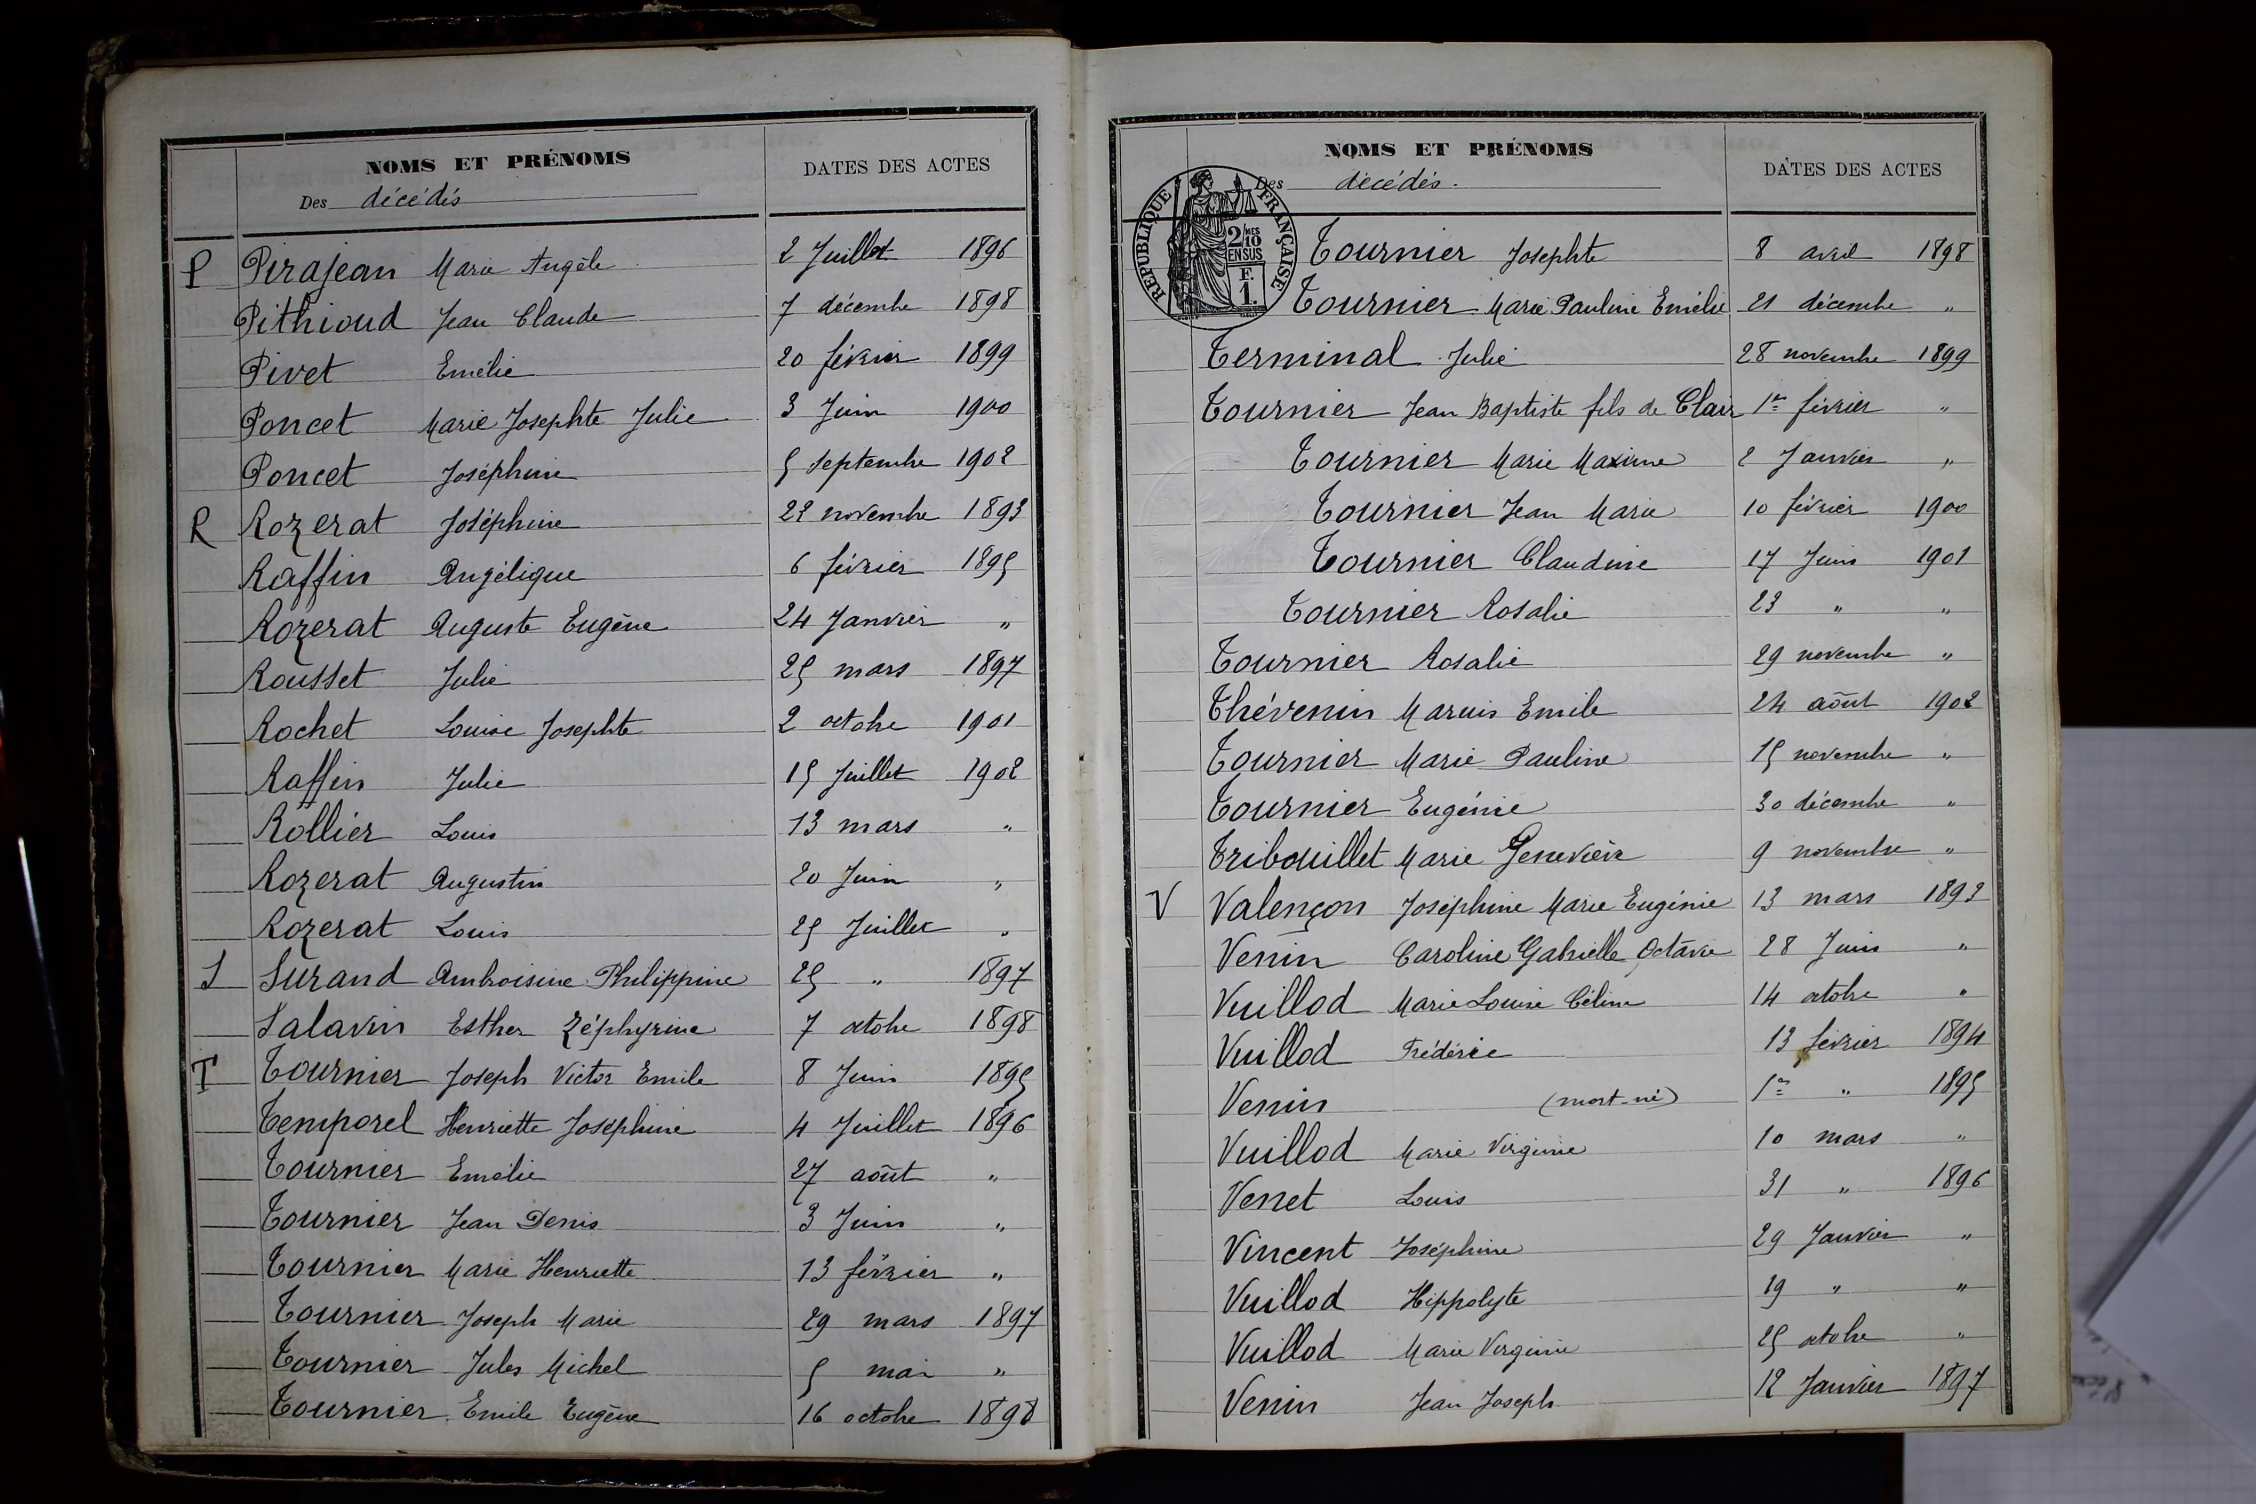 NOMS ET PRÉNOMS
Des décédés
DATES DES ACTES
P Pirajean Marie Angèle 2 Juillet 1896
Pithioud Jean Claude 7 décembre 1898
Pivet Emélie 20 février 1899
Poncet Marie Josephte Julie 3 Juin 1900
Poncet Joséphine 5 septembre 1902
R Rozerat Joséphine 22 novembre 1893
Raffin Angélique 6 février 1895
Rozerat Auguste Eugène 24 Janvier "
Rousset Julie 25 mars 1897
Rochet Louise Josephte 2 octobre 1901
Raffin Julie 15 Juillet 1902
Rollier Louis 13 mars "
Rozerat Augustin 20 Juin "
Rozerat Louis 25 Juillet "
S Surand Ambroisine Philippine 25 " 1897
Salavin Esther Zéphyrine 7 octobre 1898
T Tournier Joseph Victor Emile 8 Juin 1895
Temporel Henriette Joséphine 4 Juillet 1896
Tournier Emélie 27 août "
Tournier Jean Denis 3 Juin "
Tournier Marie Henriette 13 février "
Tournier Joseph Marie 29 mars 1897
Tournier Jules Michel 5 mai "
Tournier Emile Eugène 16 octobre 1898
NOMS ET PRÉNOMS
Des décédés.
DATES DES ACTES
REPUBLIQUE FRANÇAISE
2/10 MES
EN SUS
F.
1.
Tournier Josephte 8 avril 1898
Tournier Marie Pauline Emélie 21 décembre "
Terminal Julie 28 novembre 1899
Tournier Jean Baptiste fils de Clair 1er février "
Tournier Marie Maxime 2 Janvier "
Tournier Jean Marie 10 février 1900
Tournier Claudine 17 Juin 1901
Tournier Rosalie 23 " "
Tournier Rosalie 29 novembre "
Thévenin Marius Emile 24 août 1902
Tournier Marie Pauline 15 novembre "
Tournier Eugénie 30 décembre "
Tribouillet Marie Geneviève 9 novembre "
V Valençon Joséphine Marie Eugénie 13 mars 1893
Venin Caroline Gabrielle Octavie 28 Juin "
Vuillod Marie Louise Céline 14 octobre "
Vuillod Frédéric 13 février 1894
Venin (mort-né) 1er " 1895
Vuillod Marie Virginie 10 mars "
Venet Louis 31 " 1896
Vincent Joséphine 29 Janvier "
Vuillod Hippolyte 19 " "
Vuillod Marie Virginie 25 octobre "
Venin Jean Joseph 12 Janvier 1897